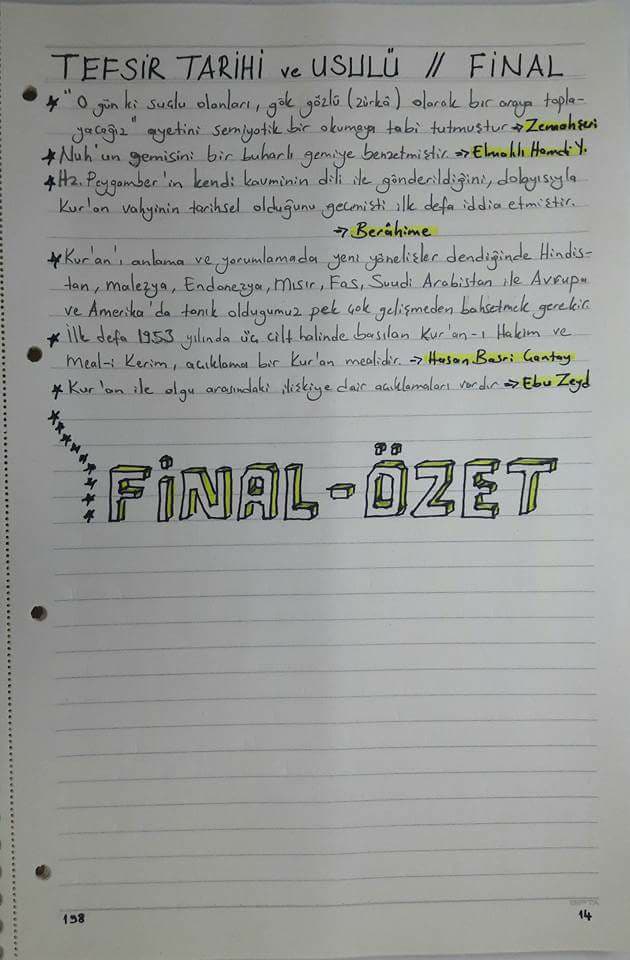 TEFSİR TARİHİ ve USULÜ // FİNAL
★ "O gün ki suçlu olanları, gök gözlü (zürkâ) olarak bir araya topla-
yacağız" ayetini semiyotik bir okumaya tabi tutmuştur → Zemahşeri
★ Nuh'un gemisini bir buharlı gemiye benzetmiştir. → Elmalılı Hamdi Y.
★ Hz. Peygamber'in kendi kavminin dili ile gönderildiğini, dolayısıyla
Kur'an vahyinin tarihsel olduğunu geçmişti ilk defa iddia etmiştir.
→ Berâhime
★ Kur'an'ı anlama ve yorumlamada yeni yönelişler dendiğinde Hindis-
tan, malezya, Endonezya, Mısır, Fas, Suudi Arabistan ile Avrupa
ve Amerika'da tanık olduğumuz pek çok gelişmeden bahsetmek gerekir.
★ İlk defa 1953 yılında üç cilt halinde basılan Kur'an-ı Hakim ve
Meal-i Kerim, açıklama bir Kur'an mealidir. → Hasan Basri Çantay
★ Kur'an ile olgu arasındaki ilişkiye dair açıklamaları vardır → Ebu Zeyd
FİNAL-ÖZET
198
14